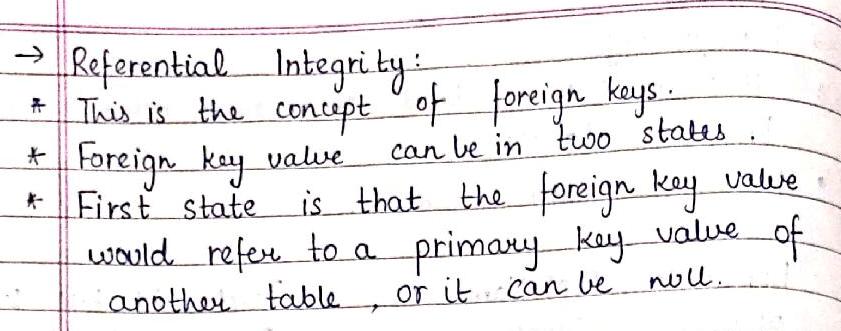 → Referential Integrity:
* This is the concept of foreign keys.
* Foreign key value can be in two states.
* First state is that the foreign key value
would refer to a primary key value of
another table, or it can be null.